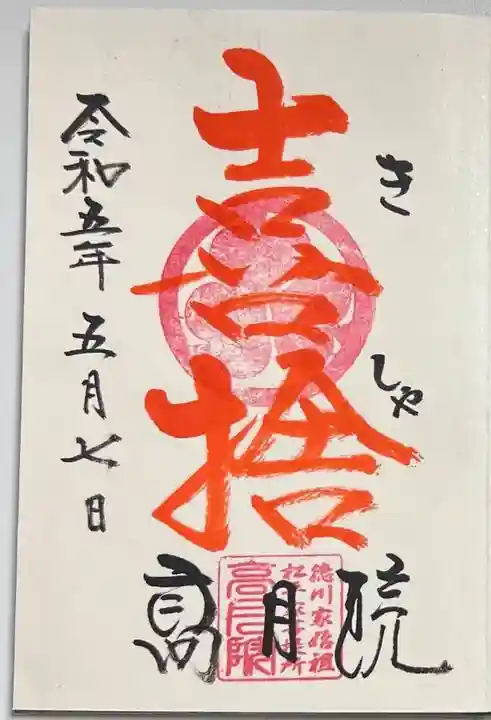 き
しゃ
喜捨
令和五年五月七日
高月院
徳川家始祖
松平家菩提所
高月院